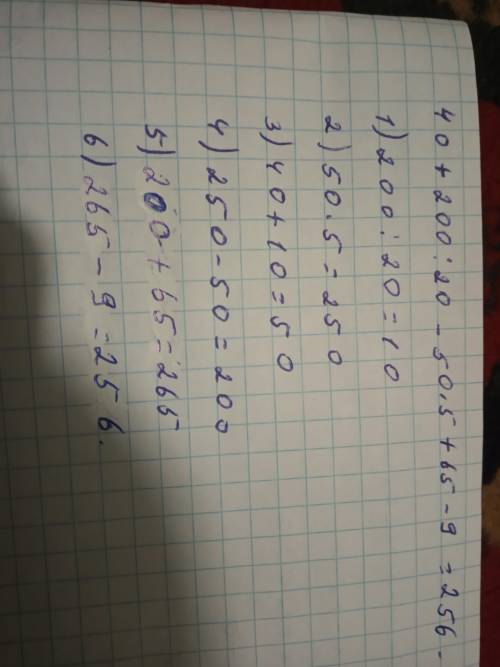 40 + 200 : 20 - 50.5 + 65 - 9 = 256 -
1) 200 : 20 = 10
2) 50.5 = 250
3) 40 + 10 = 50
4) 250 - 50 = 200
5) 200 + 65 = 265
6) 265 - 9 = 256.